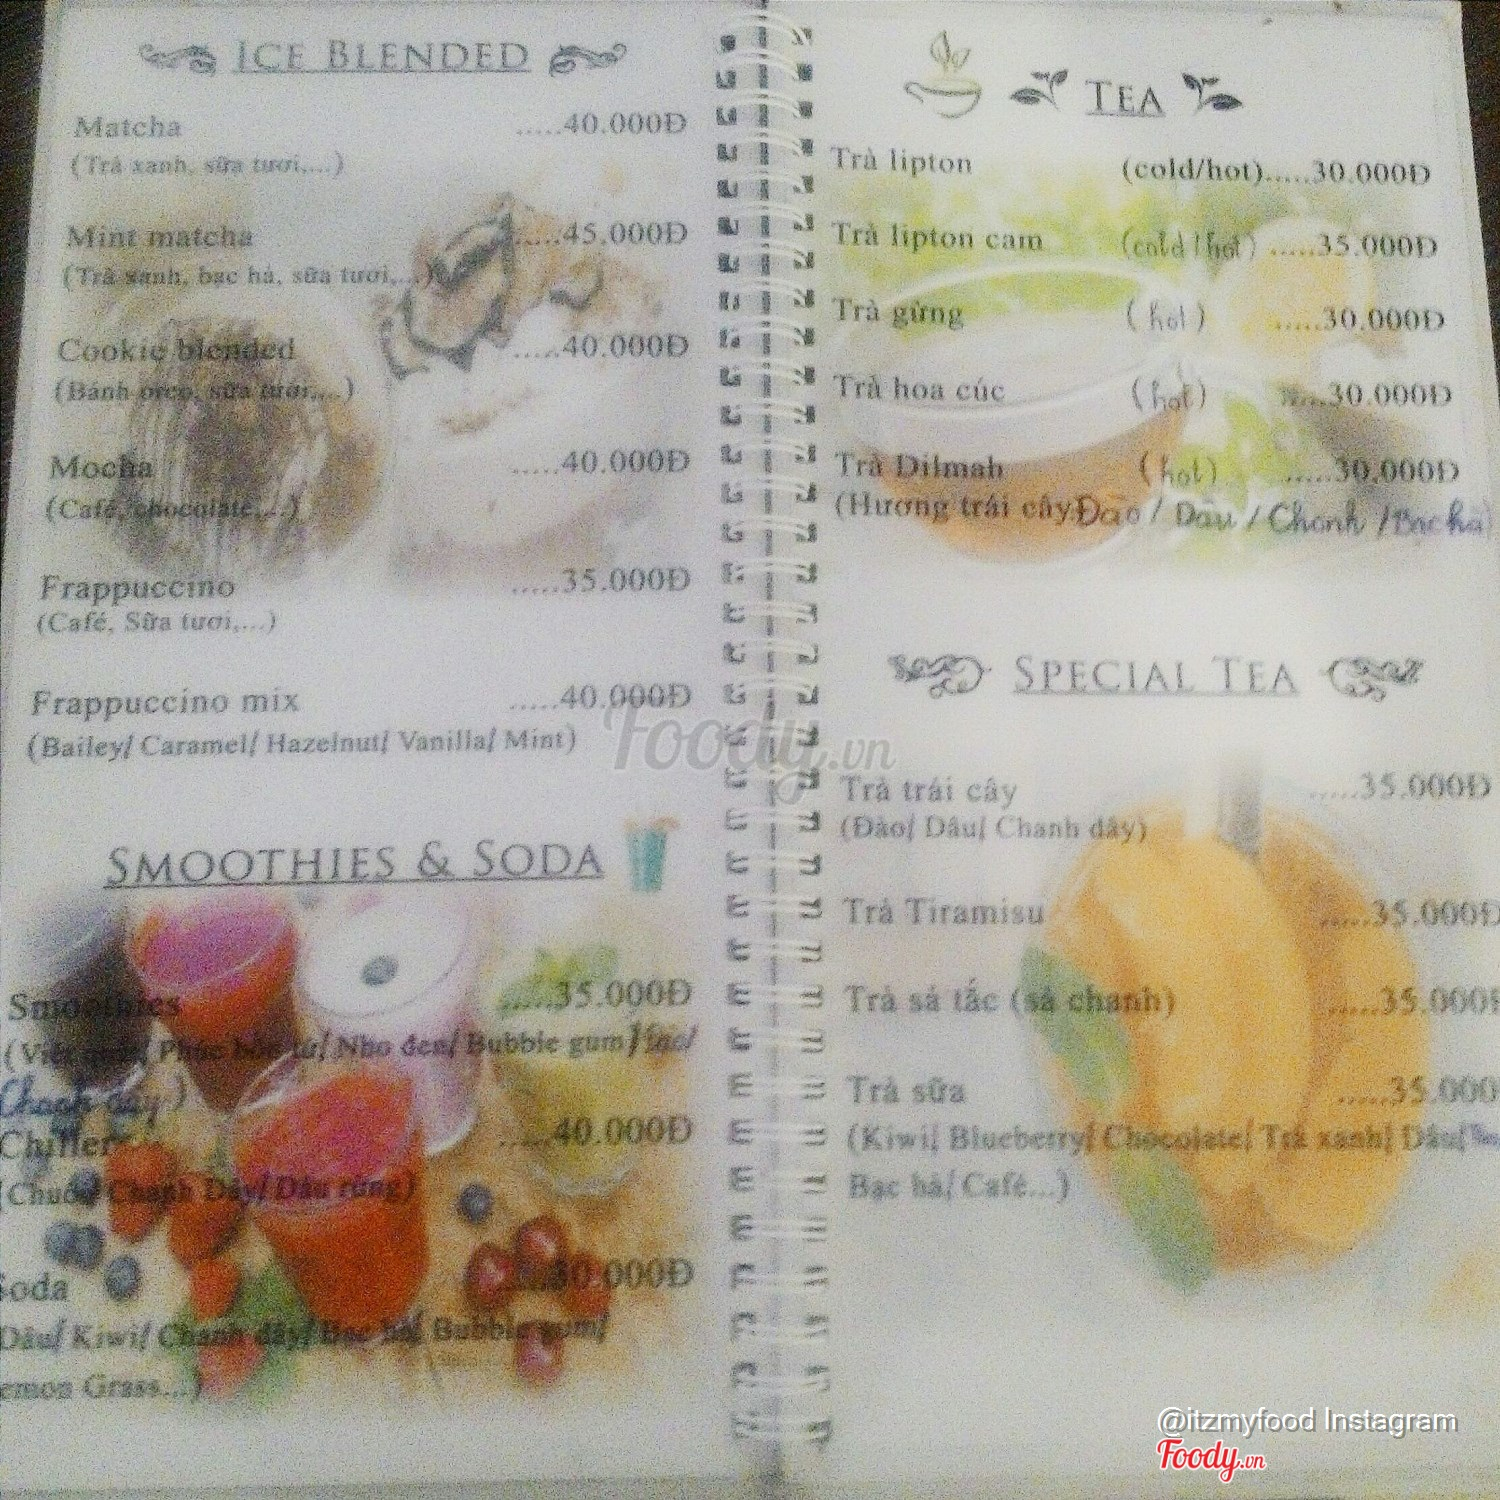 ICE BLENDED
Matcha .....40.000Đ
(Trà xanh, sữa tươi,...)
Mint matcha .....45.000Đ
(Trà xanh, bạc hà, sữa tươi,...)
Cookie blended .....40.000Đ
(Bánh oreo, sữa tươi,...)
Mocha .....40.000Đ
(Café, chocolate,...)
Frappuccino .....35.000Đ
(Café, Sữa tươi,...)
Frappuccino mix .....40.000Đ
(Bailey/ Caramel/ Hazelnut/ Vanilla/ Mint)
SMOOTHIES & SODA
Smoothies .....35.000Đ
(Việt quất/ Phúc bồn tử/ Nho đen/ Bubble gum/
Chanh dây)
Chiller .....40.000Đ
(Chuối/ Chanh Dây/ Dâu rừng)
Soda .....30.000Đ
Dâu/ Kiwi/ Chanh dây/ Bạc hà/ Bubble gum/
emon Grass...)
TEA
Trà lipton (cold/hot).....30.000Đ
Trà lipton cam (cold/hot) .....35.000Đ
Trà gừng (hot) .....30.000Đ
Trà hoa cúc (hot) .....30.000Đ
Trà Dilmah (hot) .....30.000Đ
(Hương trái cây: Đào / Dâu / Chanh / Bạc hà)
SPECIAL TEA
Trà trái cây .....35.000Đ
(Đào/ Dâu/ Chanh dây)
Trà Tiramisu .....35.000Đ
Trà sả tắc (sả chanh) .....35.000Đ
Trà sữa .....35.000
(Kiwi/ Blueberry/ Chocolate/ Trà xanh/ Dâu/
Bạc hà/ Café...)
Foody.vn
@itzmyfood Instagram
Foody.vn